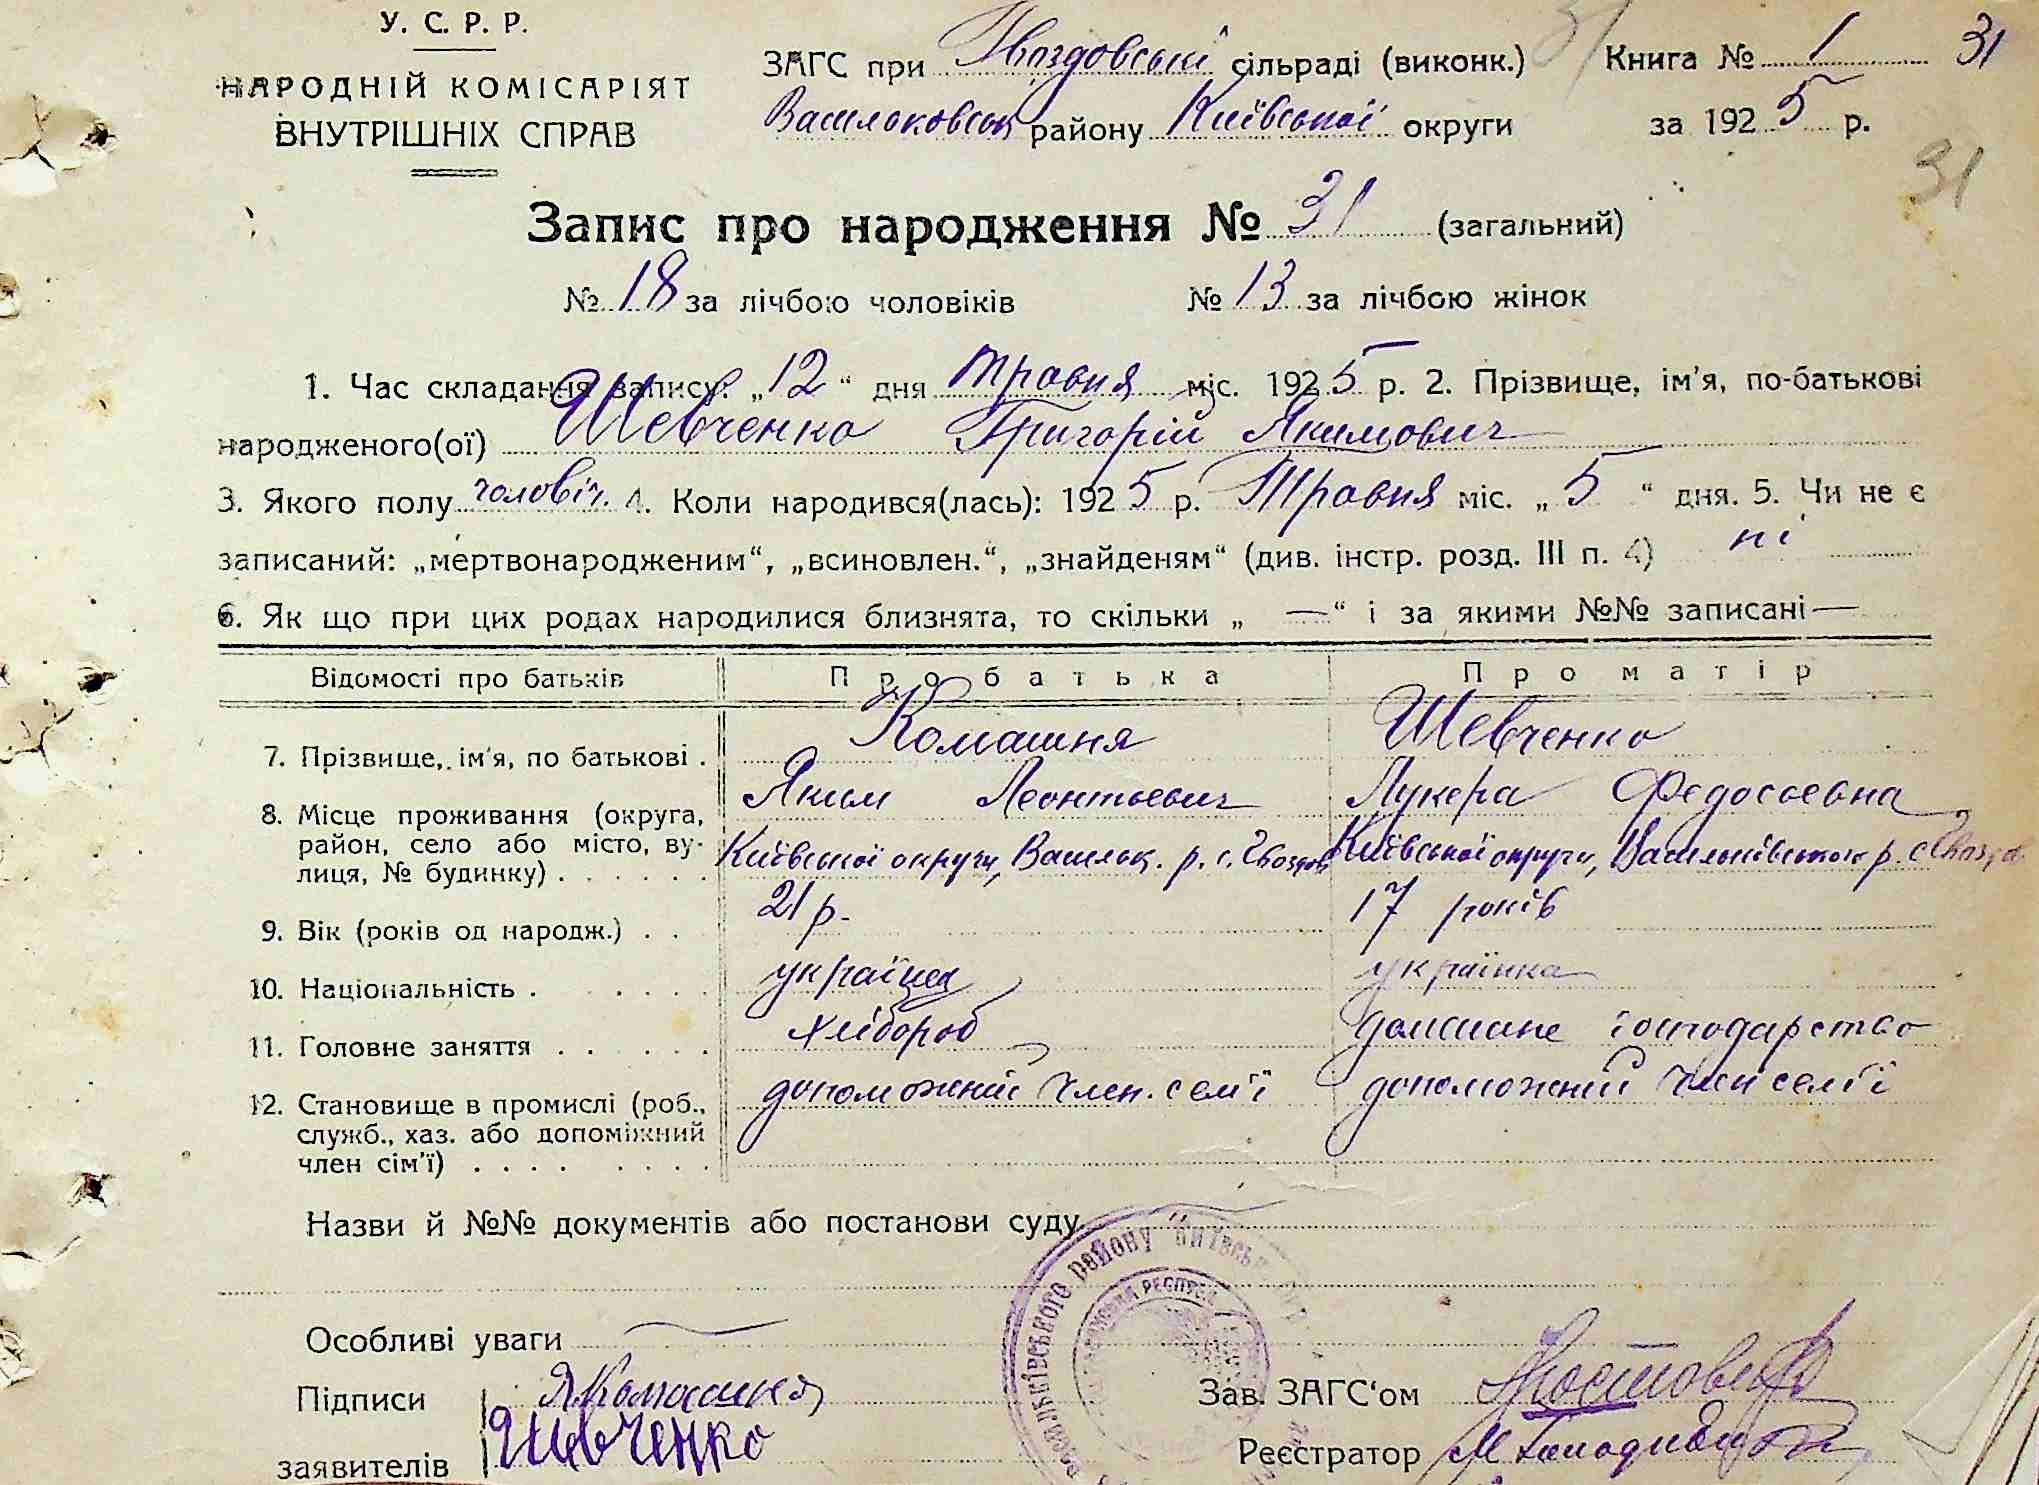 У. С. Р. Р.
НАРОДНІЙ КОМІСАРІЯТ
ВНУТРІШНІХ СПРАВ
ЗАГС при Гвоздовській сільраді (виконк.) 31 Книга № 1 31
Васильковськ району Київської округи за 1925 р.
31
Запис про народження № 31 (загальний)
№ 18 за лічбою чоловіків № 13 за лічбою жінок
1. Час складання запису: „12“ дня травня міс. 1925 р. 2. Прізвище, ім'я, по-батькові
народженого(ої) Шевченко Григорій Якимович
3. Якого полу чоловіч. 4. Коли народився(лась): 1925 р. Травня міс. „5“ дня. 5. Чи не є
записаний: „мертвонародженим“, „всиновлен.“, „знайденям“ (див. інстр. розд. III п. 4) ні
6. Як що при цих родах народилися близнята, то скільки „ — “ і за якими №№ записані —
Відомості про батьків Про батька Про матір
7. Прізвище, ім'я, по батькові . Комашня Шевченко
Яким Леонтьевич Лукера Федосьевна
8. Місце проживання (округа,
район, село або місто, ву-
лиця, № будинку) . . . . . . Київської округи, Васильк. р. с. Гвоздов Київської округи, Васильківського р. с Гвоздов
9. Вік (років од народж.) . . 21 р. 17 років
10. Національність . . . . . українец українка
11. Головне заняття . . . . . хлібороб домашне господарство
12. Становище в промислі (роб.,
служб., хаз. або допоміжний
член сім'ї) . . . . . . . . допоможній член. семʼї допоможній член семʼї
Назви й №№ документів або постанови суду
Особливі уваги
Підписи ЯКомашня
заявителів Шевченко
Зав. ЗАГС'ом
Реєстратор
Васильківського району Київськ
РЕСПУБ